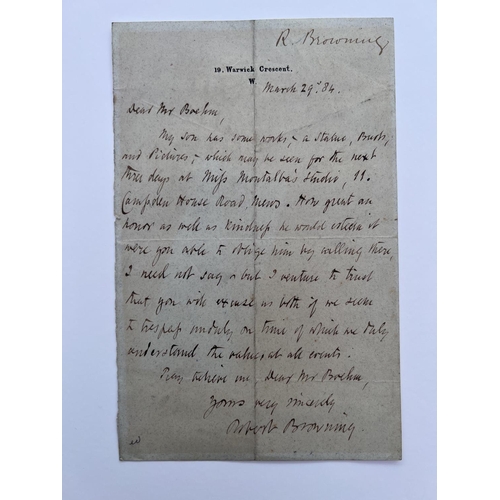 R. Browning
19, Warwick Crescent,
W.
March 29. '84.
Dear Mr Boehm,
My son has some works, - a Statue, Busts,
and Pictures, - which may be seen for the next
three days at Miss Montalba's Studio, 11.
Campden House Road, Mews. How great an
honor as well as kindness he would esteem it
were you able to oblige him by calling there,
I need not say - but I venture to trust
that you will excuse us both if we seem
to trespass unduly on time of which we duly
understand the value, at all events.
Pray believe me, Dear Mr Boehm,
Yours very sincerely
Robert Browning.